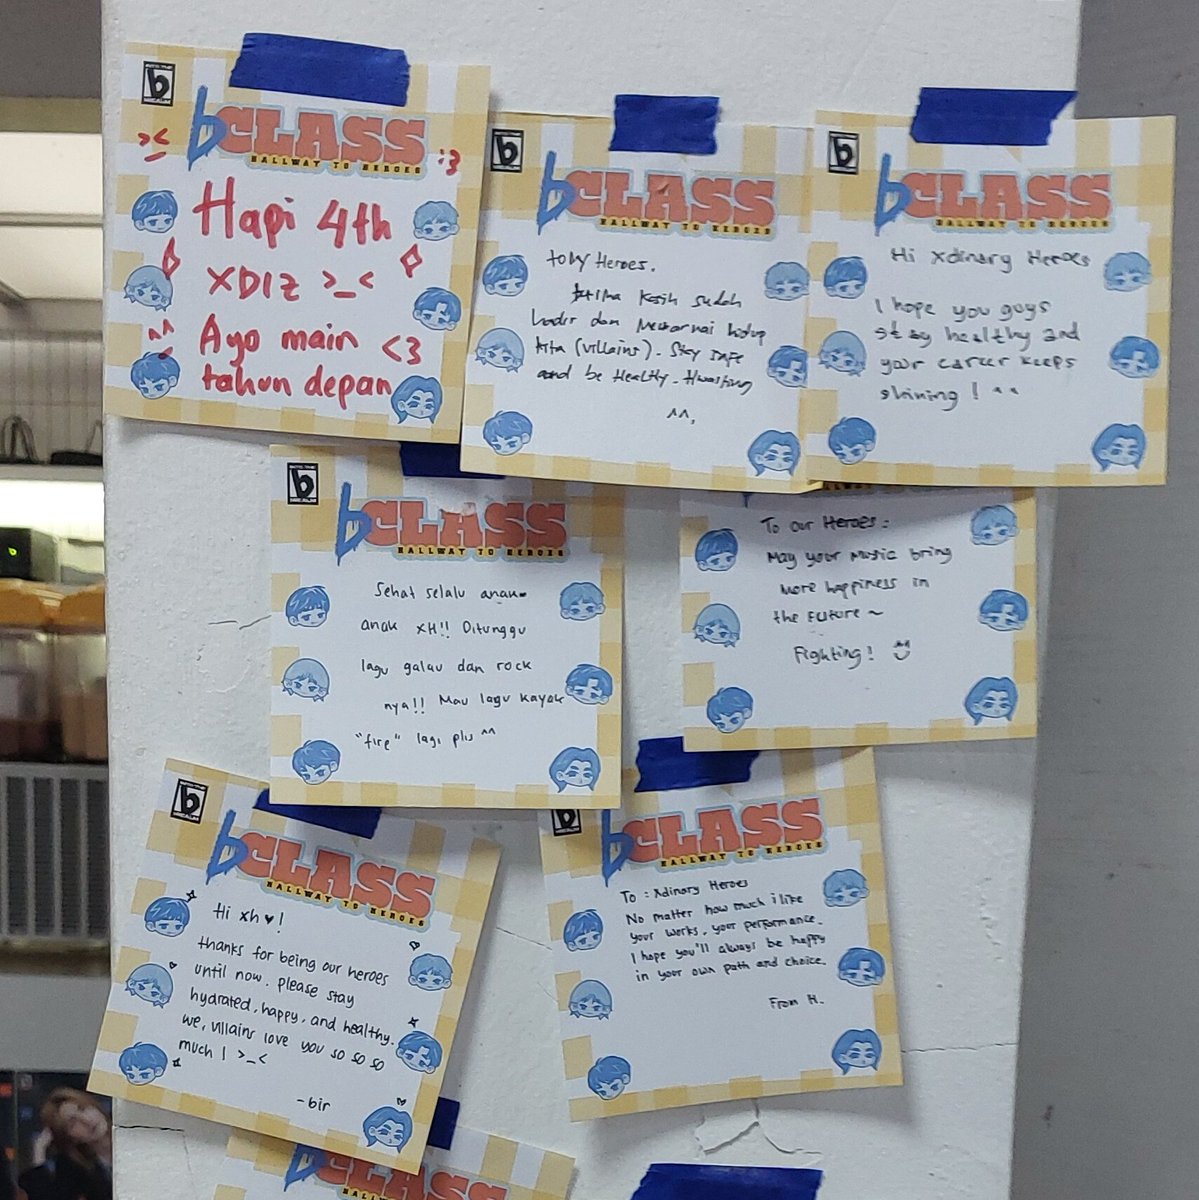 b
bCLASS
HALLWAY TO HEROES
>_< :3
Hapi 4th
XDIZ >_<
Ayo main <3
tahun depan
^^
b
bCLASS
HALLWAY TO HEROES
to My Heroes.
terima kasih sudah
hadir dan Mewarnai hidup
kita (villains). Stay safe
and be Healthy. Hwaiting
^^,
b
bCLASS
HALLWAY TO HEROES
Hi xdinary Heroes
I hope you guys
stay healthy and
your career keeps
shining ! ^^
INTO THE
b
bCLASS
HALLWAY TO HEROES
Sehat selalu anak-
anak XH!! Ditunggu
lagu galau dan rock
nya!! Mau lagu kayak
"fire" lagi pls ^^
HALLWAY TO HEROES
To our Heroes :
May your music bring
More happiness in
the future ~
Fighting!
b
bCLASS
HALLWAY TO HEROES
Hi xh ♥ !
thanks for being our heroes
until now. please stay
hydrated, happy, and healthy.
we, villains love you so so so
much ! >_<
- bir
b
bCLASS
HALLWAY TO HEROES
To : Xdinary Heroes
No matter how much i like
your works, your performance.
I hope you'll always be happy
in your own path and choice.
From H.
bCLASS